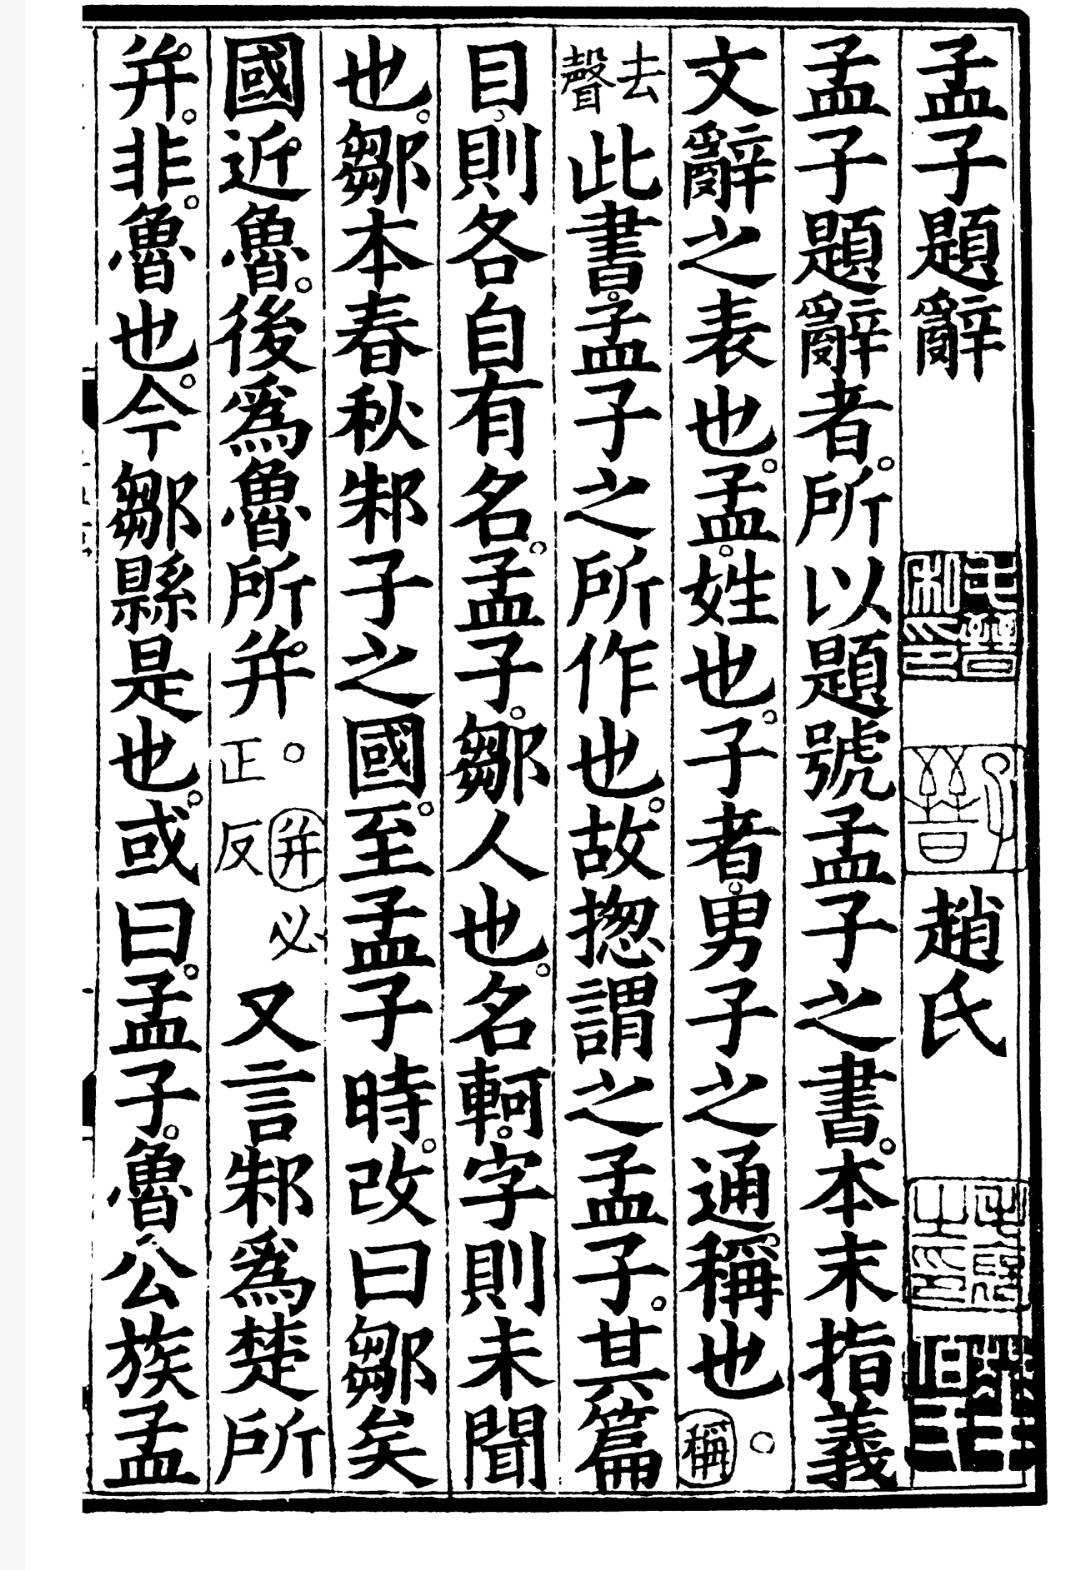 孟子題辭 趙氏
孟子題辭者。所以題號孟子之書。本末指義
文辭之表也。孟。姓也。子者。男子之通稱也。稱
去聲此書。孟子之所作也。故揔謂之孟子。其篇
目。則各自有名。孟子。鄒人也。名軻。字則未聞
也。鄒本春秋邾子之國。至孟子時。改曰鄒矣
國近魯。後爲魯所并。并必正反又言邾爲楚所
并。非魯也。今鄒縣是也。或曰。孟子。魯公族孟